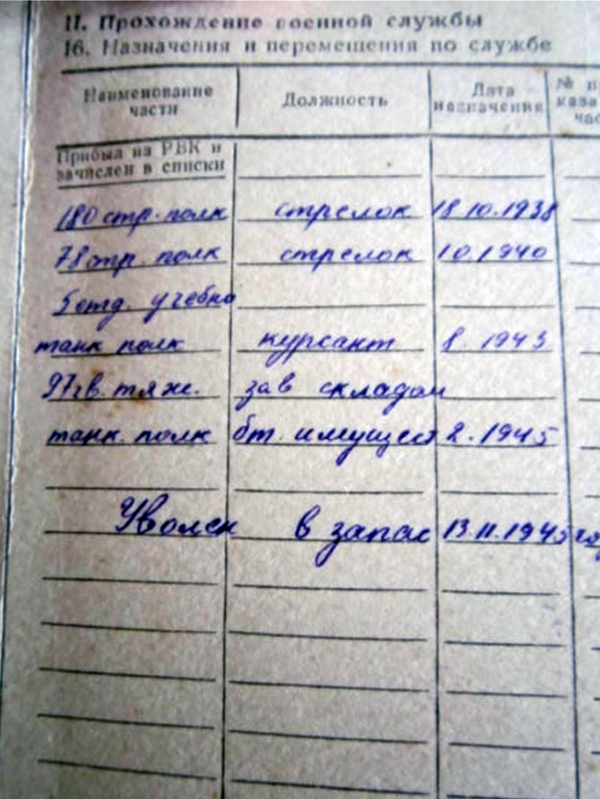 II. Прохождение военной службы
16. Назначения и перемещения по службе
Наименование части Должность Дата назначения № п
каза
час
Прибыл из РВК и
зачислен в списки
180 стр. полк стрелок 18.10.1938
78 стр. полк стрелок 10.1940
5 отд. учебно
танк полк курсант 8.1943
97 гв. тяж. зав складом
танк. полк бт. имущест 2.1945
Уволен в запас 13.11.1945